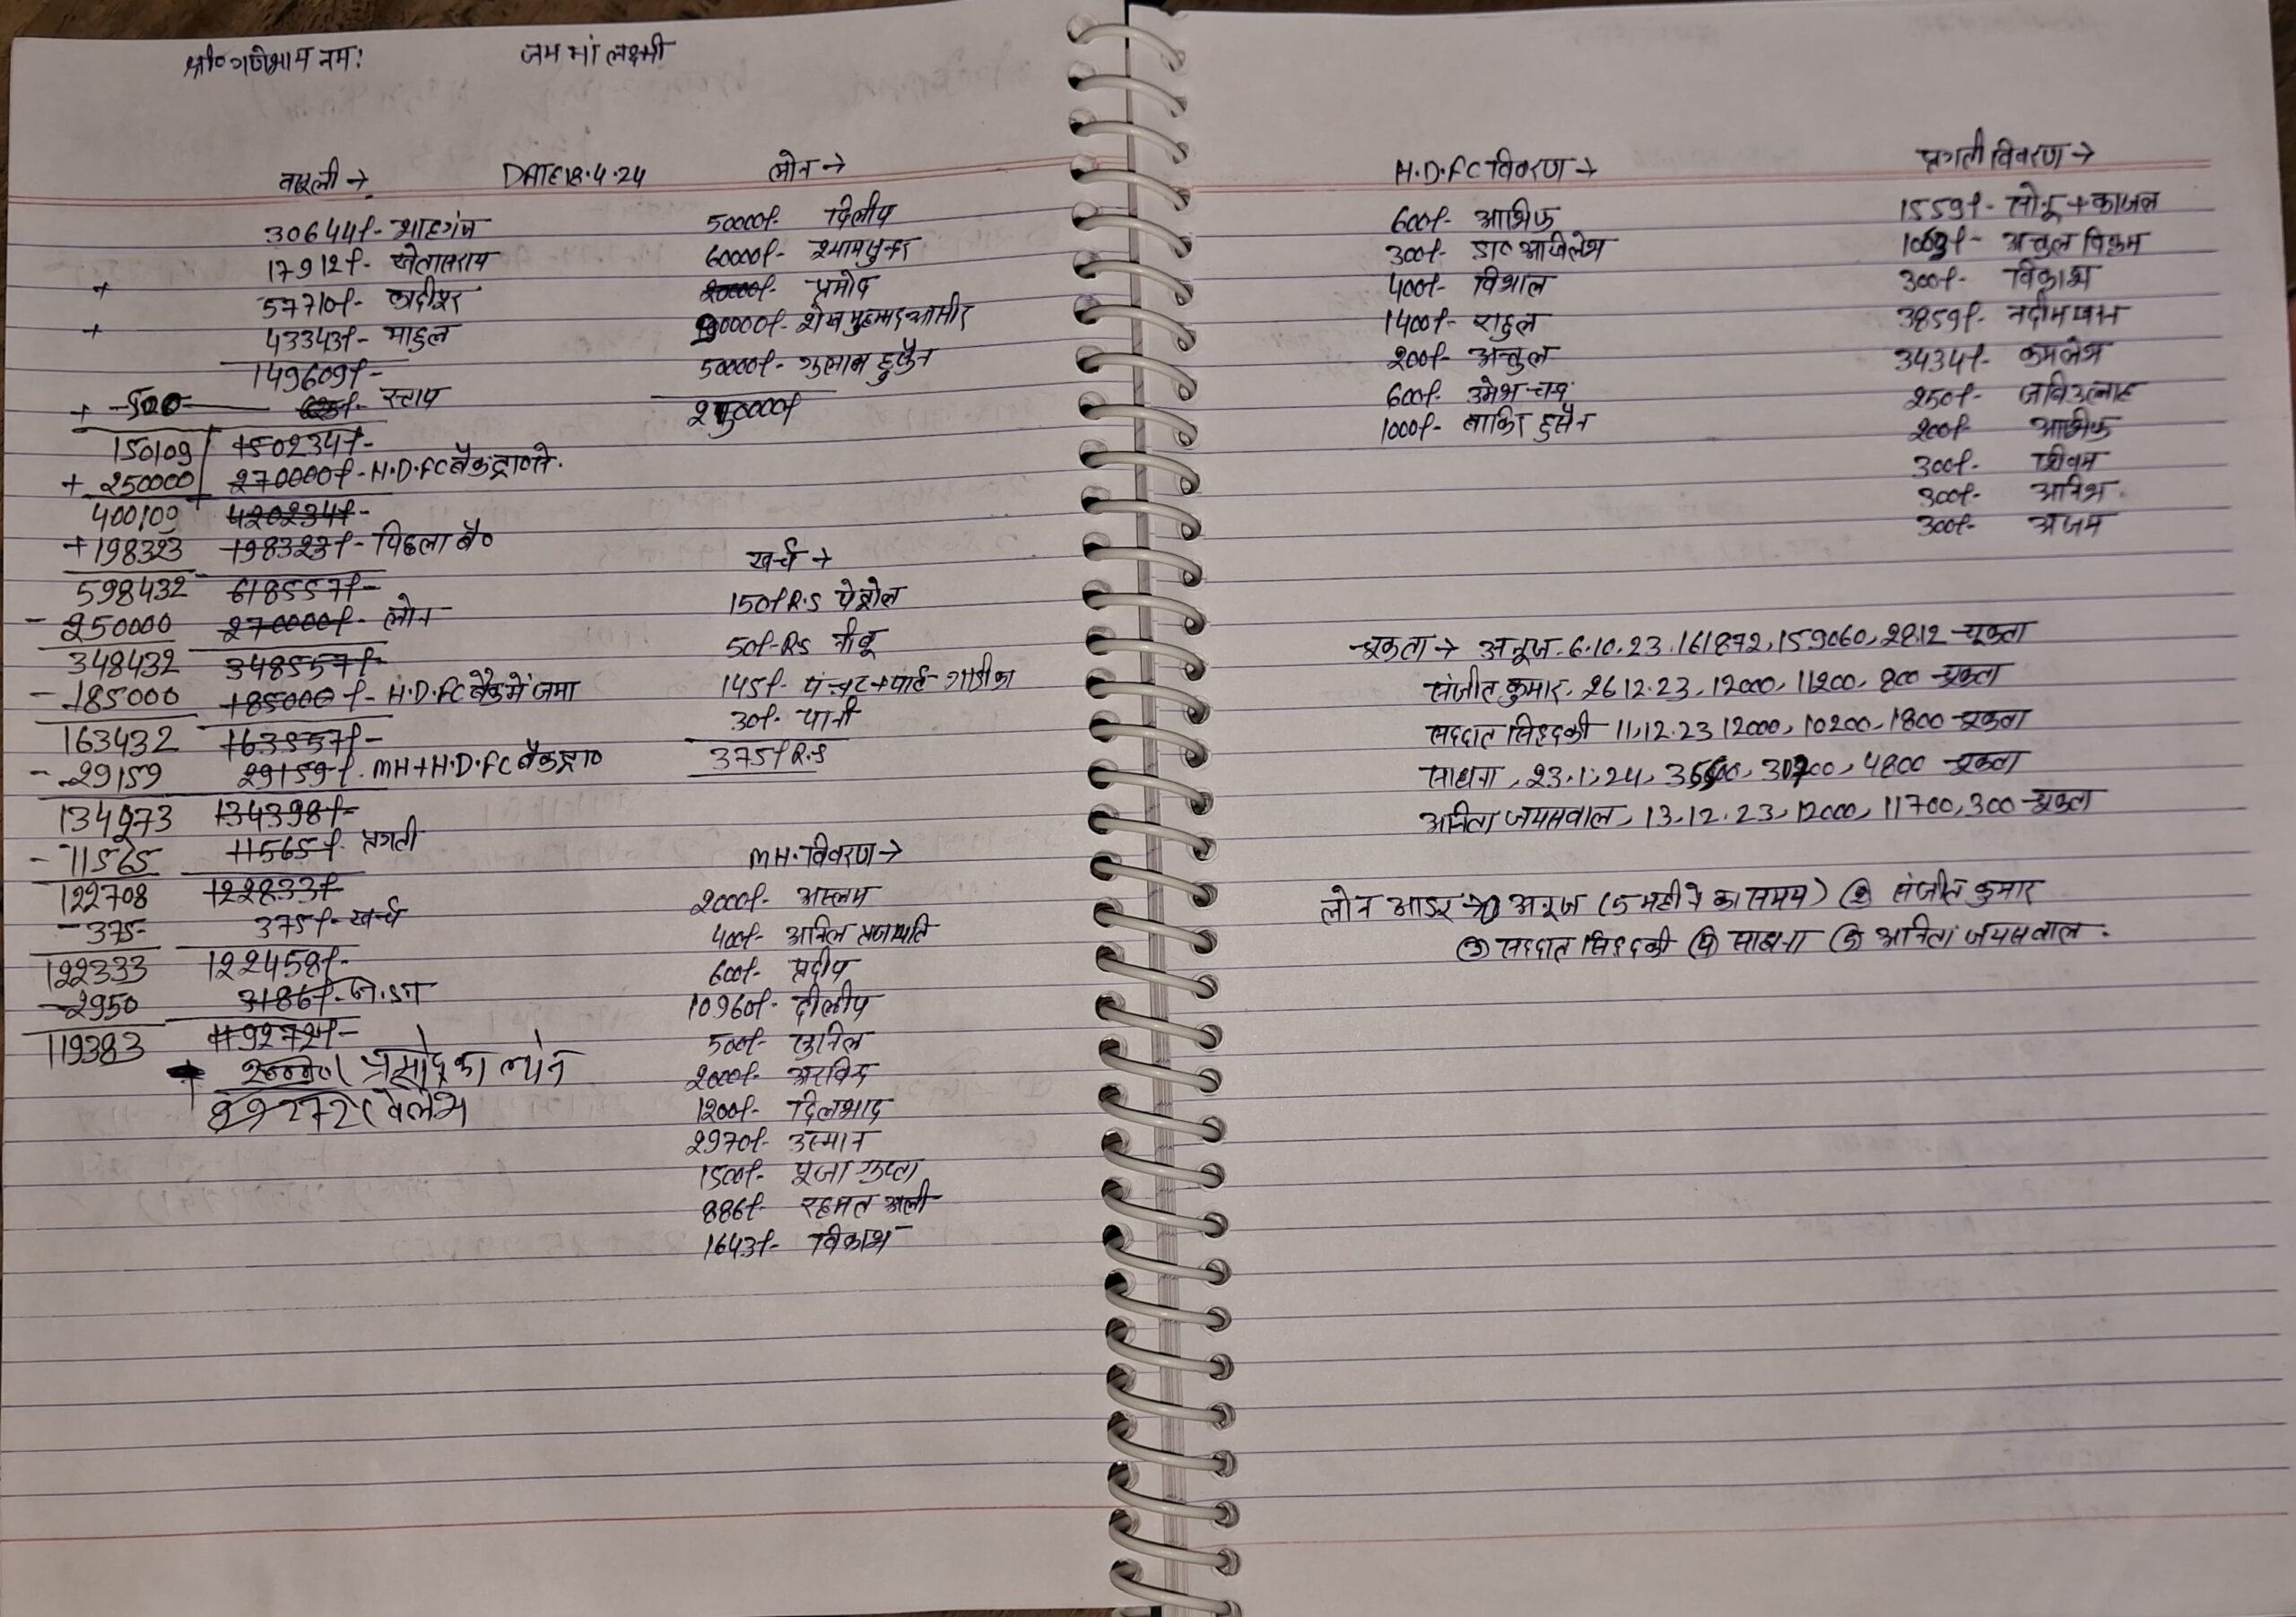 श्री० गणेशाय नम:
जय मां लक्ष्मी
वासूली →
DATE 18.4.24
30644/- शाहगंज
17912/- खेतासराय
+ 57710/- लादीपुर
+ 43343/- माहुल
149609/-
+ 500 625/- स्टाप
150109 150234/-
+ 250000 270000/- H.D.FC बैंक ट्रा०से.
400109 420234/-
+ 198323 198323/- पिछला बै०
598432 618557/-
- 250000 270000/- लोन
348432 348557/-
- 185000 185000/- H.D.FC बैंक में जमा
163432 163557/-
- 29159 29159/- MH+H.D.FC बैंक ट्रा०
134273 134398/-
- 11565 11565/- प्रगती
122708 122833/-
- 375 375/- खर्च
122333 122458/-
- 2950 3186/-
119383 119272/-
प्रमोद का लोन
89272/ बैलेंस
लोन →
50000/- दिलीप
60000/- श्यामसुन्दर
20000/- प्रमोद
90000/- शेख मुहम्मद आमीर
50000/- गुलाम हुसैन
250000/-
खर्च →
150/R.S पेट्रोल
50/-RS नीबू
145/- पंन्चर+पार्ट गाडी का
30/- पानी
375/R.S
MH.विवरण →
2000/- अस्लम
400/- अनिल प्रजापति
600/- प्रदीप
10960/- दीलीप
500/- सुनिल
2000/- अरविन्द
1200/- दिलशाद
2970/- उस्मान
1500/- पूजा गुप्ता
886/- रहमत अली
1643/- विकाश
H.D.FC विवरण →
600/- आशिफ
300/- डा० अखिलेश
400/- विशाल
1400/- राहुल
200/- अतुल
600/- उमेश चन्द
1000/- बाकिर हुसैन
प्रगती विवरण →
1559/- सोनू + काजल
1063/- अतुल विक्रम
300/- विकाश
3859/- नदीम खान
3434/- कमलेश
250/- जबिउल्लाह
200/- आशीफ
300/- शिवम
300/- अनिश
300/- अजम
चूकता → अनूज. 6.10.23.161872, 159060, 2812 चूकता
संजीत कुमार, 26.12.23, 12000, 11200, 800 चूकता
सददात सिद्दकी 11.12.23 12000, 10200, 1800 चूकता
साधना, 23.1.24, 35500, 30700, 4800 चूकता
अनिता जयसवाल, 13.12.23, 12000, 11700, 300 चूकता
लोन आडर → ① अनूज (5 महीने का समय) ② संजीत कुमार
③ सददात सिद्दकी ④ साधना ⑤ अनिता जयसवाल.